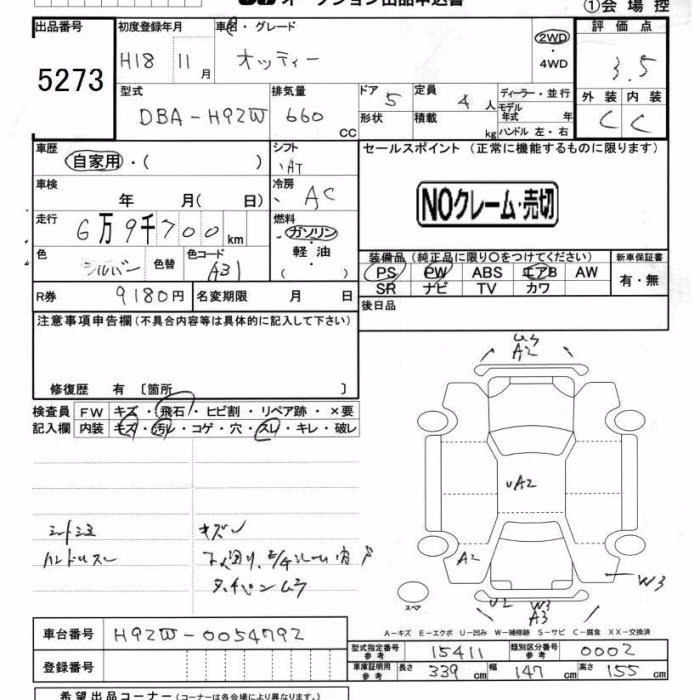 オークション出品申込書
①会場控
出品番号 初度登録年月 車名・グレード 評価点
5273 H18 11月 オッティー 2WD・4WD 3.5
型式 排気量 ドア 定員 ディーラー・並行
DBA-H92W 660cc 5 4人 モデル年式 年
形状 積載 kg ハンドル 左・右
外装 内装
C C
車歴 シフト セールスポイント (正常に機能するものに限ります)
自家用・( ) AT
車検 冷房
年 月( 日) AC
NOクレーム・売切
走行 燃料
6万9千700km ガソリン・軽油・( )
色 色替 色コード
シルバー A31
装備品 (純正品に限り○をつけてください) 新車保証書
PS PW ABS エアB AW 有・無
SR ナビ TV カワ
R券 9180円 名変期限 月 日
後日品
注意事項申告欄(不具合内容等は具体的に記入して下さい)
修復歴 有 〔箇所 〕
検査員 FW キズ・飛石・ヒビ割・リペア跡・×要
記入欄 内装 キズ・汚レ・コゲ・穴・スレ・キレ・破レ
A2
UA2
A2
W3
U2
W3
A3
スペア
A-キズ E-エクボ U-凹み W-補修跡 S-サビ C-腐食 XX-交換済
車台番号 H92W-0054792
登録番号
型式指定番号 参考 15411 類別区分番号 参考 0002
車庫証明用 参考 長さ 339cm 幅 147cm 高さ 155cm
希望出品コーナー(コーナーは各会場により異なります。)